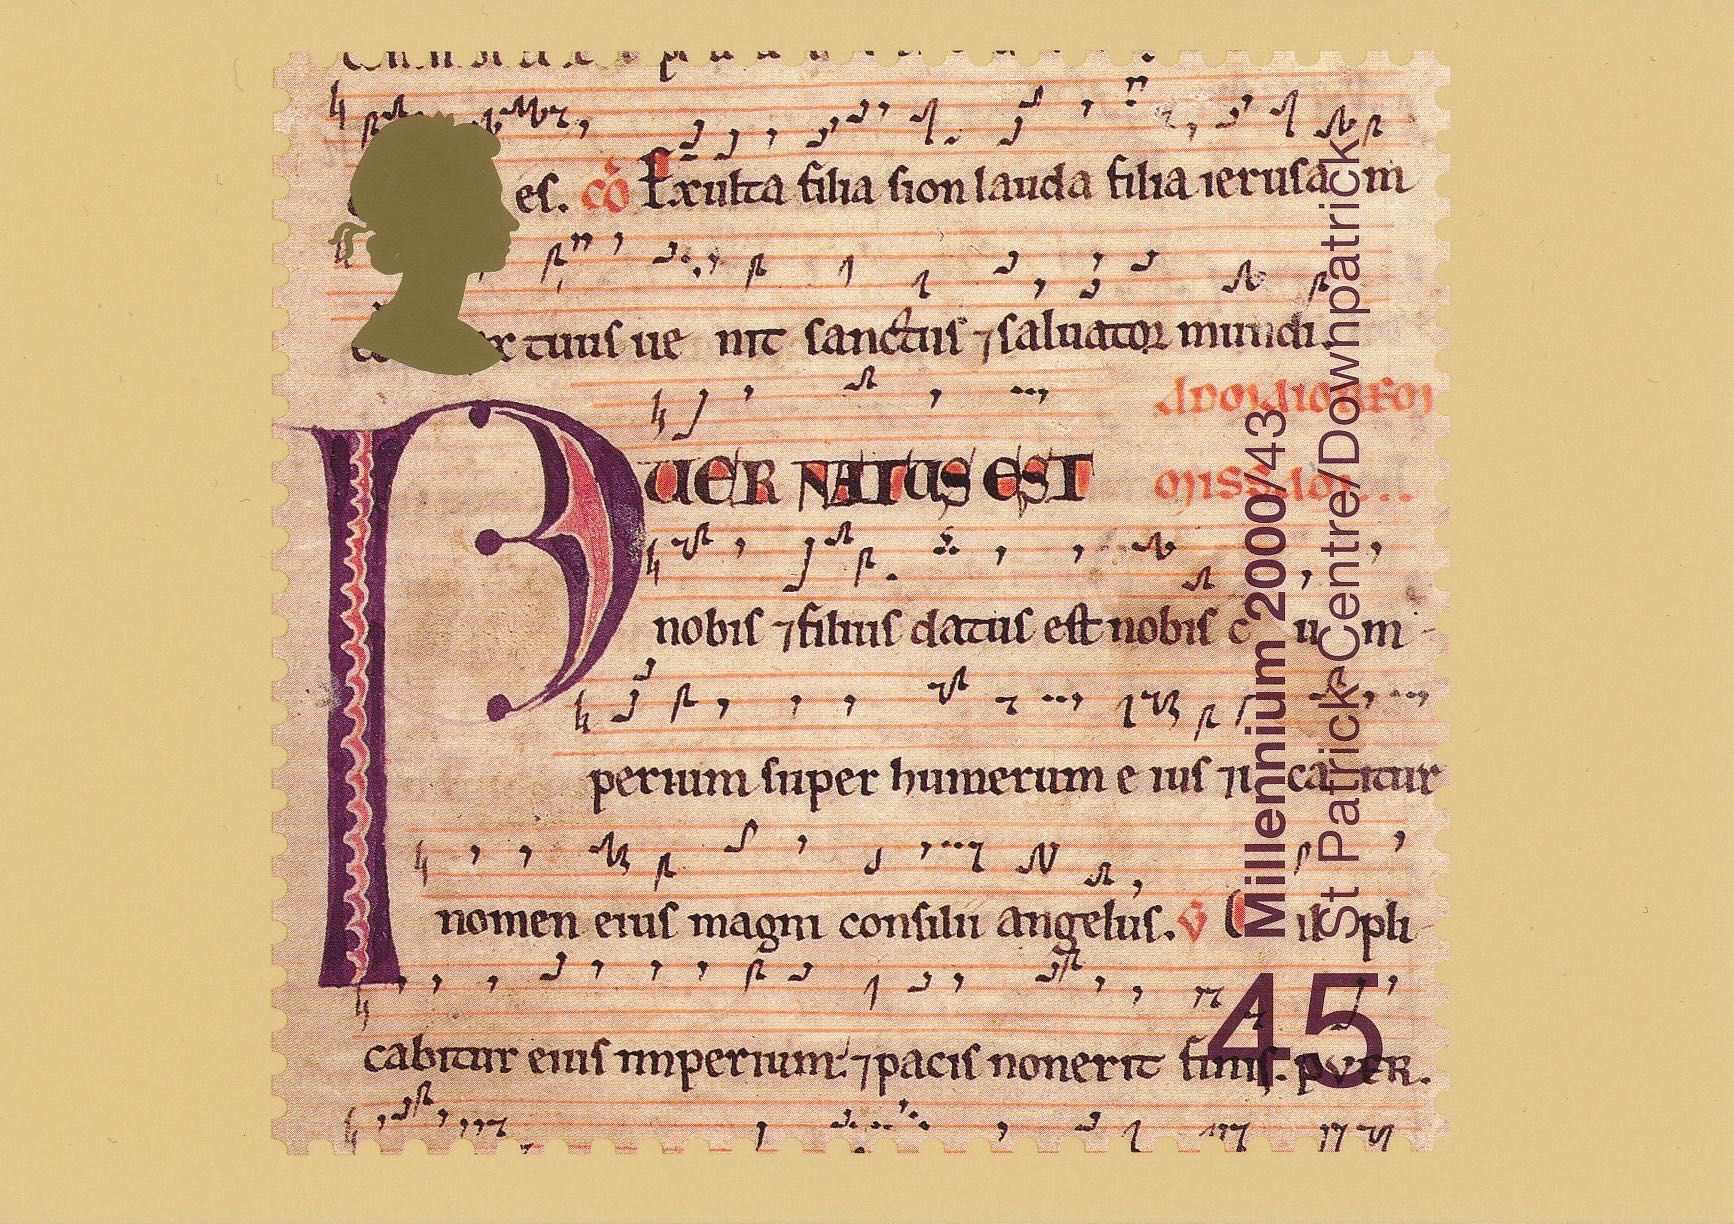 es. cō Exulta filia sion lauda filia ierusa m
x tuus ue nit sanctus ⁊ saluator mundi.
PUER NATUS EST
nobis ⁊ filius datus est nobis c u m
perium super humerum e ius ⁊ u ca itur
nomen eius magni consilii angelus. v̄ il pli
cabitur eius imperium: ⁊ pacis non erit finis. PVER.
Millennium 2000/43
St Patrick Centre/Downpatrick
45